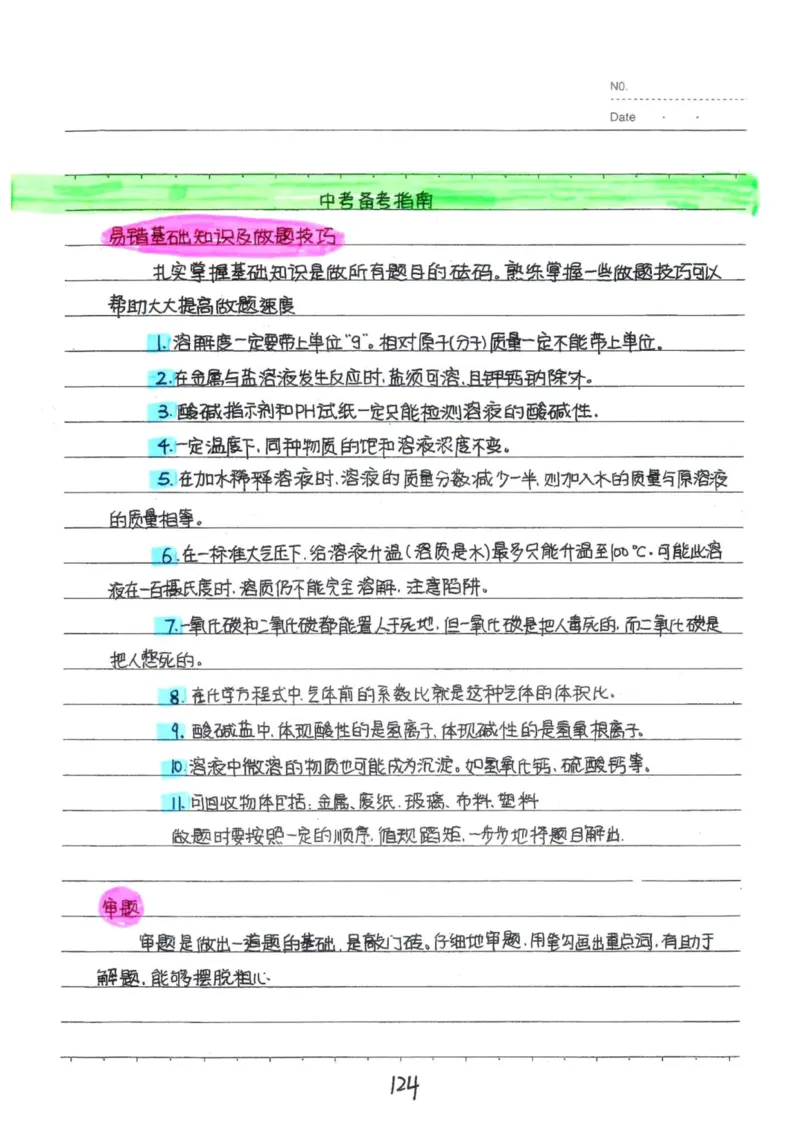 NO.
Date
中考备考指南
易错基础知识及做题技巧
扎实掌握基础知识是做所有题目的砝码。熟练掌握一些做题技巧可以
帮助大大提高做题速度
1.溶解度一定要带上单位"g"。相对原子(分子)质量一定不能带上单位。
2.在金属与盐溶液发生反应时,盐须可溶,且钾钙钠除外。
3.酸碱指示剂和PH试纸一定只能检测溶液的酸碱性.
4.一定温度下,同种物质的饱和溶液浓度不变。
5.在加水稀释溶液时,溶液的质量分数减少一半,则加入水的质量与原溶液
的质量相等。
6.在一标准大气压下,给溶液升温(溶质是水)最多只能升温至100℃.可能此溶
液在一百摄氏度时,溶质仍不能完全溶解,注意陷阱。
7.一氧化碳和二氧化碳都能置人于死地,但一氧化碳是把人毒死的,而二氧化碳是
把人憋死的。
8.在化学方程式中,气体前的系数比就是这种气体的体积比.
9.酸碱盐中,体现酸性的是氢离子,体现碱性的是氢氧根离子.
10.溶液中微溶的物质也可能成为沉淀。如氢氧化钙、硫酸钙等。
11.可回收物体包括:金属、废纸、玻璃、布料、塑料
做题时要按照一定的顺序,循规蹈矩,一步步地将题目解出.
审题
审题是做出一道题的基础,是敲门砖。仔细地审题,用笔勾画出重点词,有助于
解题,能够摆脱粗心.
124